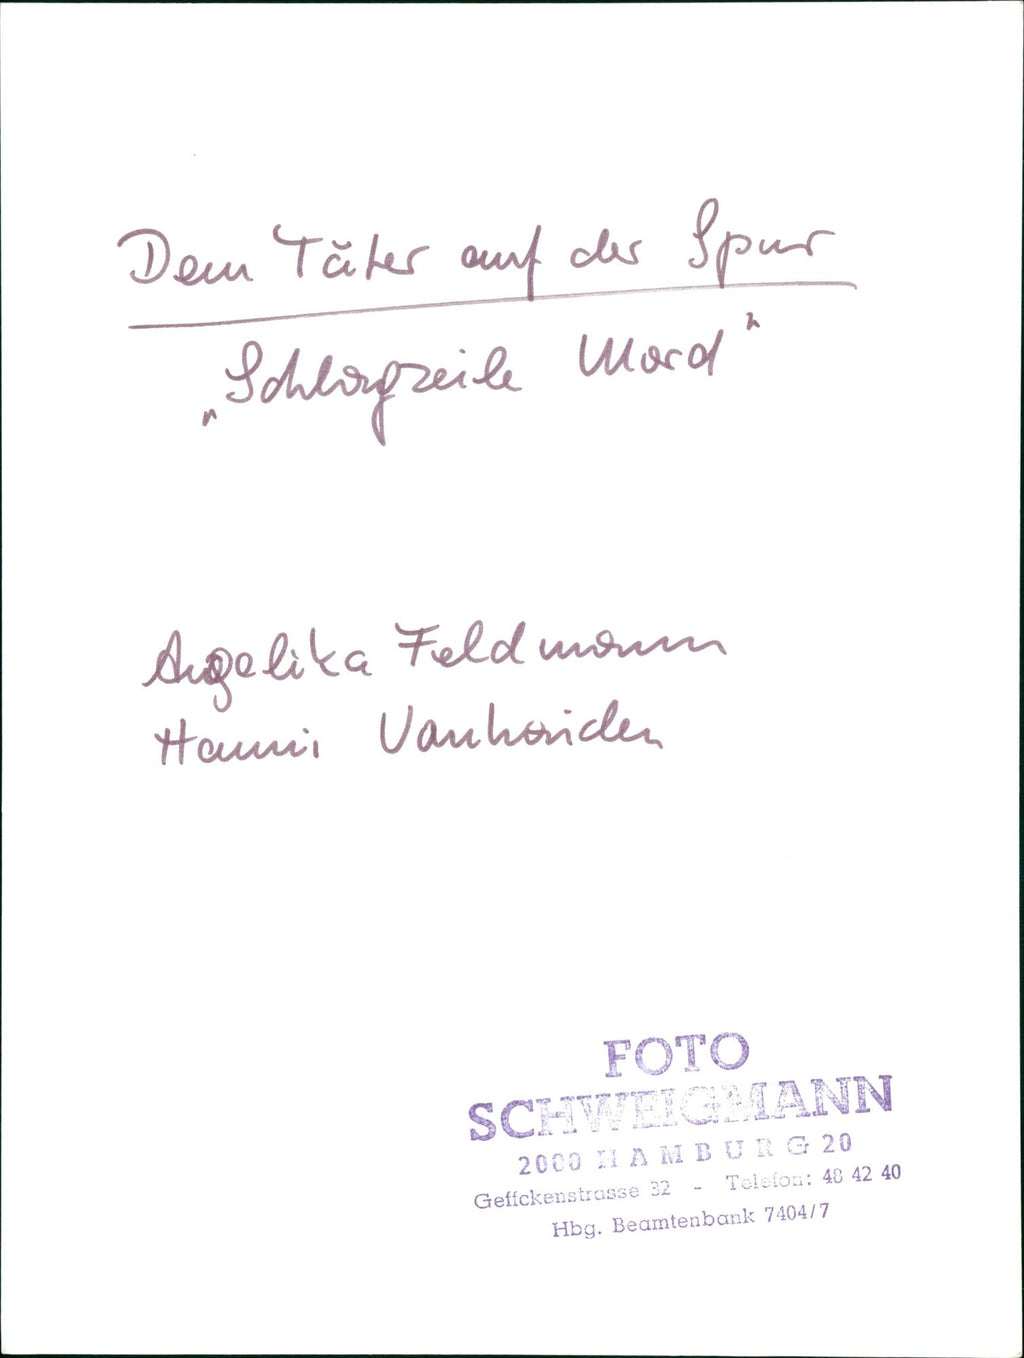 Dem Täter auf der Spur
„Schlagzeile Mord"
Angelika Feldmann
Hanni Vanhaiden
FOTO
SCHWEIGMANN
2000 HAMBURG 20
Geffckenstrasse 32 - Telefon: 48 42 40
Hbg. Beamtenbank 7404/7